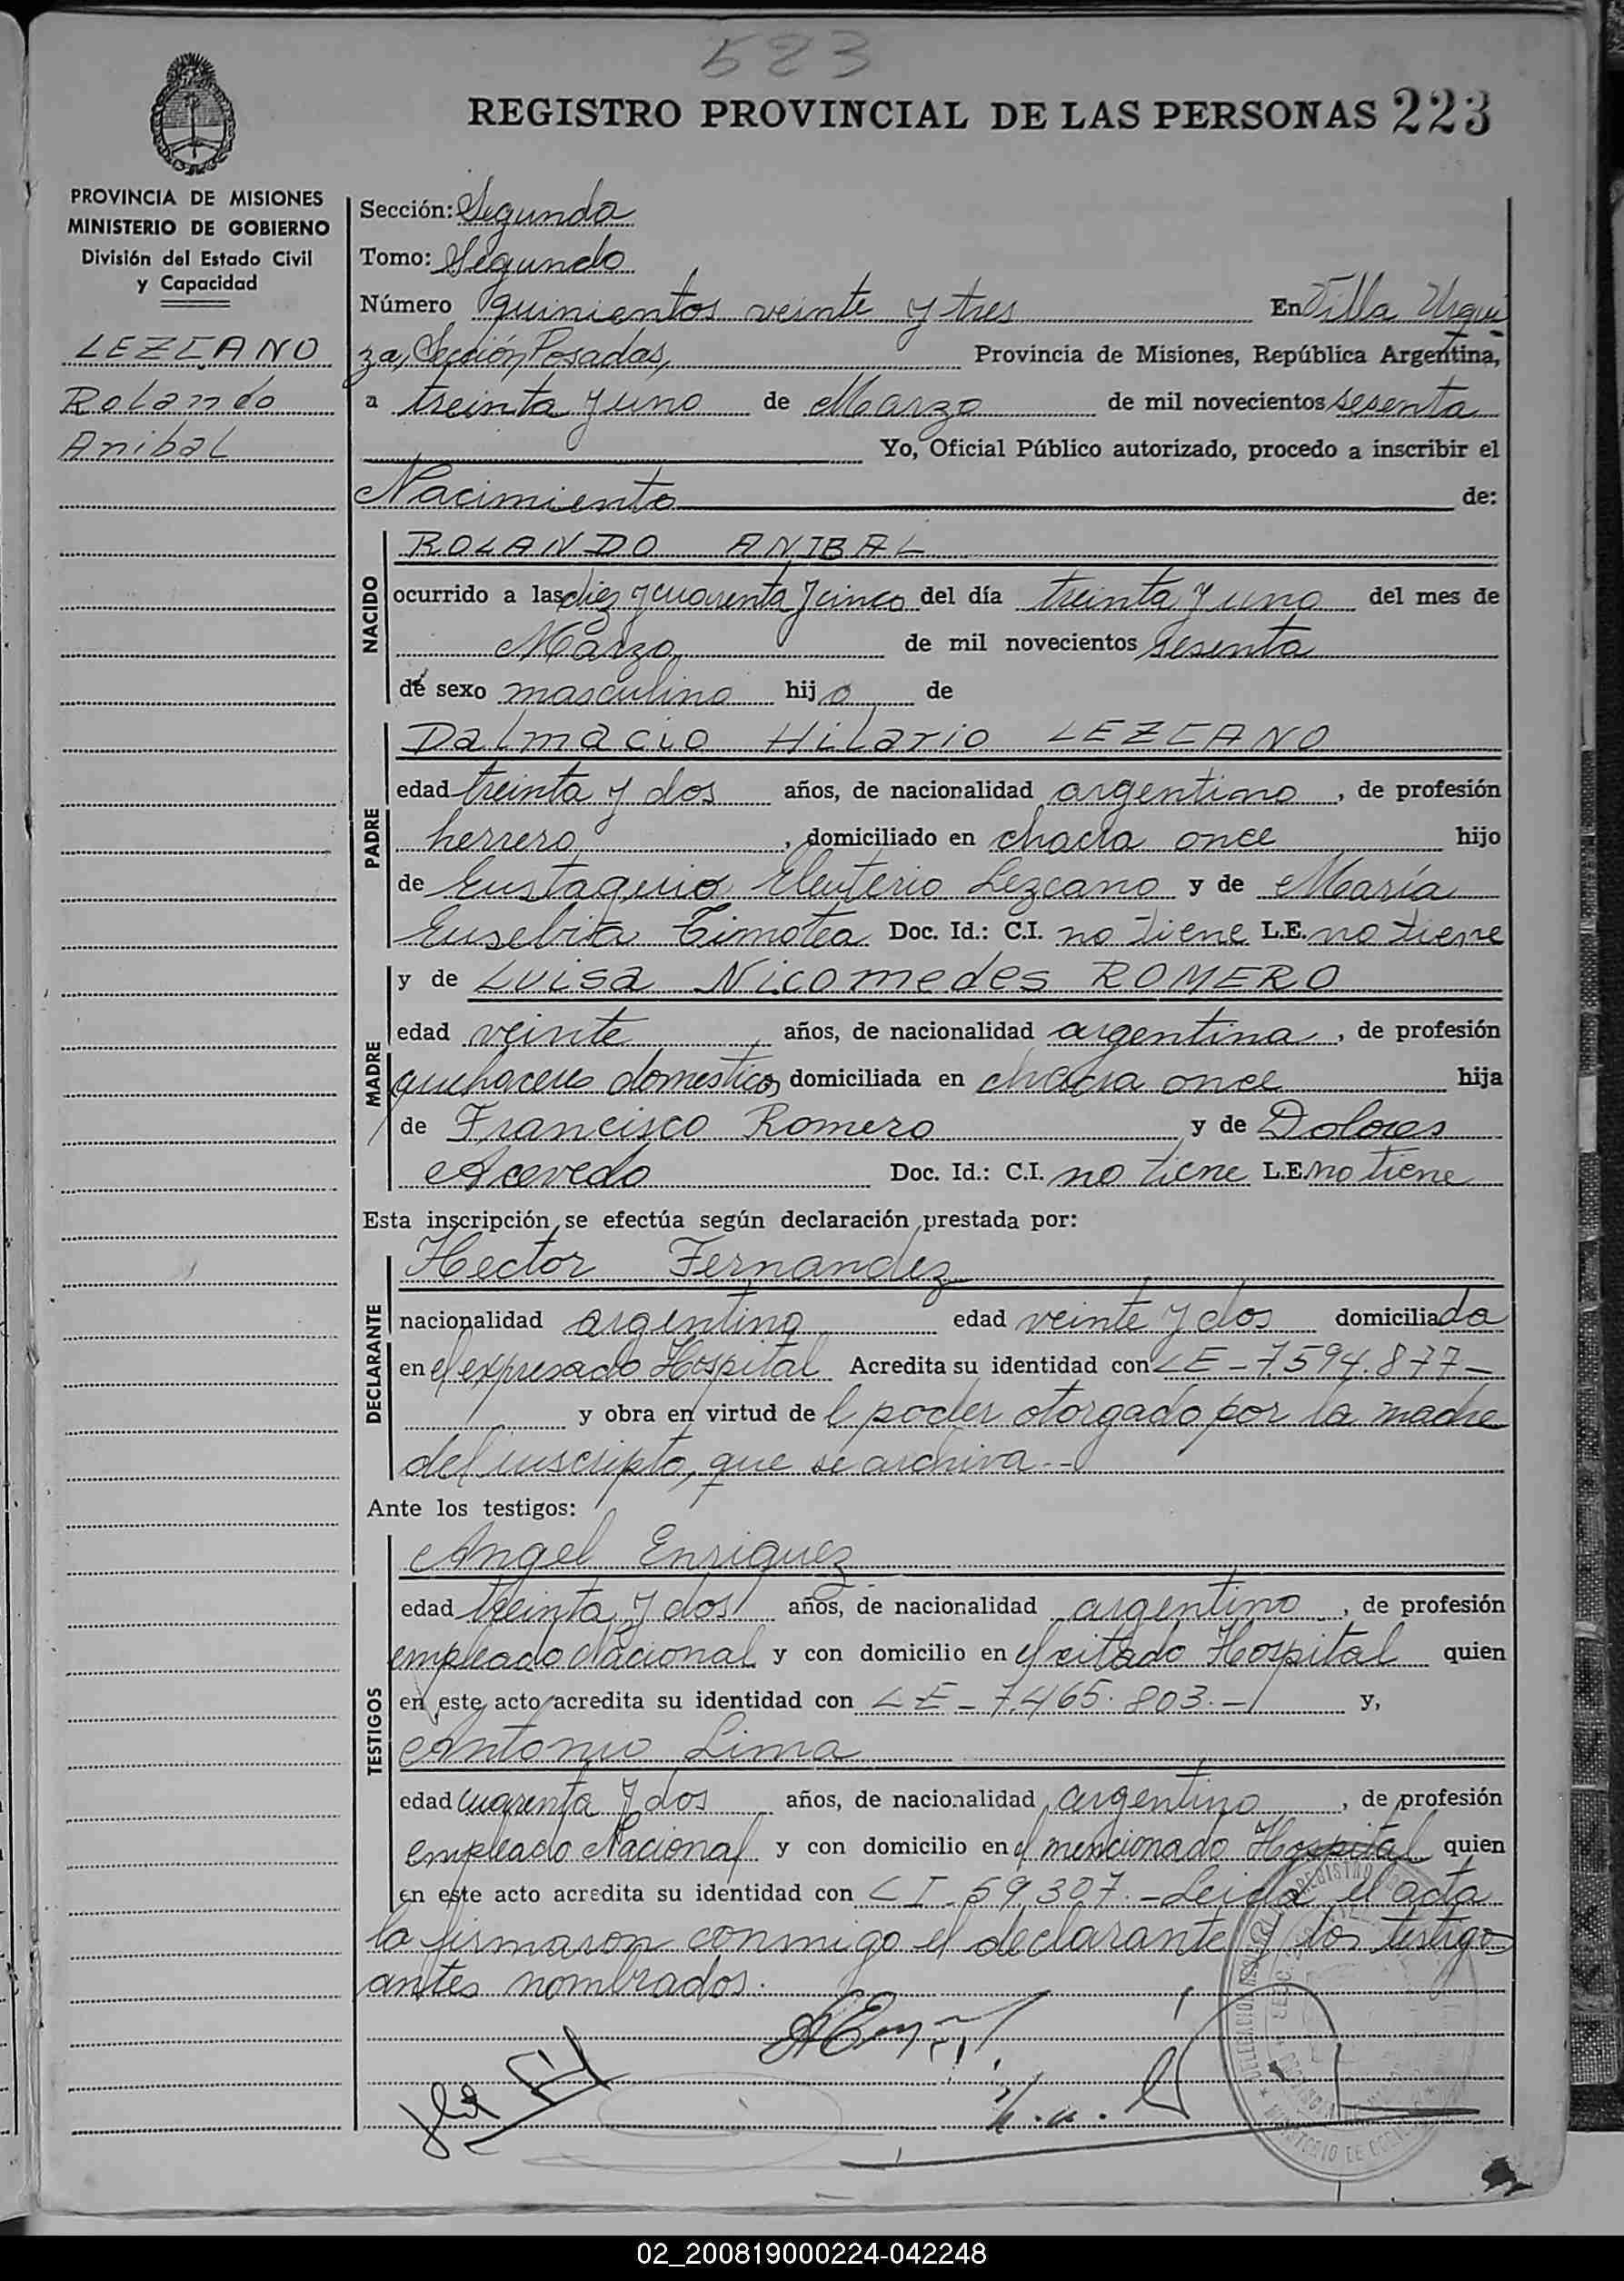 523
REGISTRO PROVINCIAL DE LAS PERSONAS 223
PROVINCIA DE MISIONES
MINISTERIO DE GOBIERNO
División del Estado Civil
y Capacidad
LEZCANO
Rolando
Anibal
Sección: Segunda
Tomo: Segundo
Número quinientos veinte y tres En Villa Urqui
za, Sección Posadas, Provincia de Misiones, República Argentina,
a treinta y uno de Marzo de mil novecientos sesenta
Yo, Oficial Público autorizado, procedo a inscribir el
Nacimiento de:
NACIDO
ROLANDO ANIBAL
ocurrido a las diez y cuarenta y cinco del día treinta y uno del mes de
Marzo de mil novecientos sesenta
de sexo masculino hijo de
PADRE
Dalmacio Hilario LEZCANO
edad treinta y dos años, de nacionalidad argentino, de profesión
herrero, domiciliado en chacra once hijo
de Eustaquio Eleuterio Lezcano y de María
Eusebita Timotea Doc. Id.: C.I. no tiene L.E. no tiene
MADRE
y de Luisa Nicomedes ROMERO
edad veinte años, de nacionalidad argentina, de profesión
quehaceres domesticos domiciliada en chacra once hija
de Francisco Romero y de Dolores
Acevedo Doc. Id.: C.I. no tiene L.E. no tiene
Esta inscripción se efectúa según declaración prestada por:
DECLARANTE
Hector Fernandez
nacionalidad argentino edad veinte y dos domiciliado
en el expresado Hospital Acredita su identidad con LE-7.594.877-
y obra en virtud de l poder otorgado por la madre
del inscripto, que se archiva.--
Ante los testigos:
TESTIGOS
Angel Enriquez
edad treinta y dos años, de nacionalidad argentino, de profesión
empleado Nacional y con domicilio en el citado Hospital quien
en este acto acredita su identidad con LE-7.465.803.- y,
Antonio Lima
edad cuarenta y dos años, de nacionalidad argentino, de profesión
empleado Nacional y con domicilio en el mencionado Hospital quien
en este acto acredita su identidad con CI. 59.307.-Leida el acta
la firmaron conmigo el declarante y los testigos
antes nombrados.
02_200819000224-042248